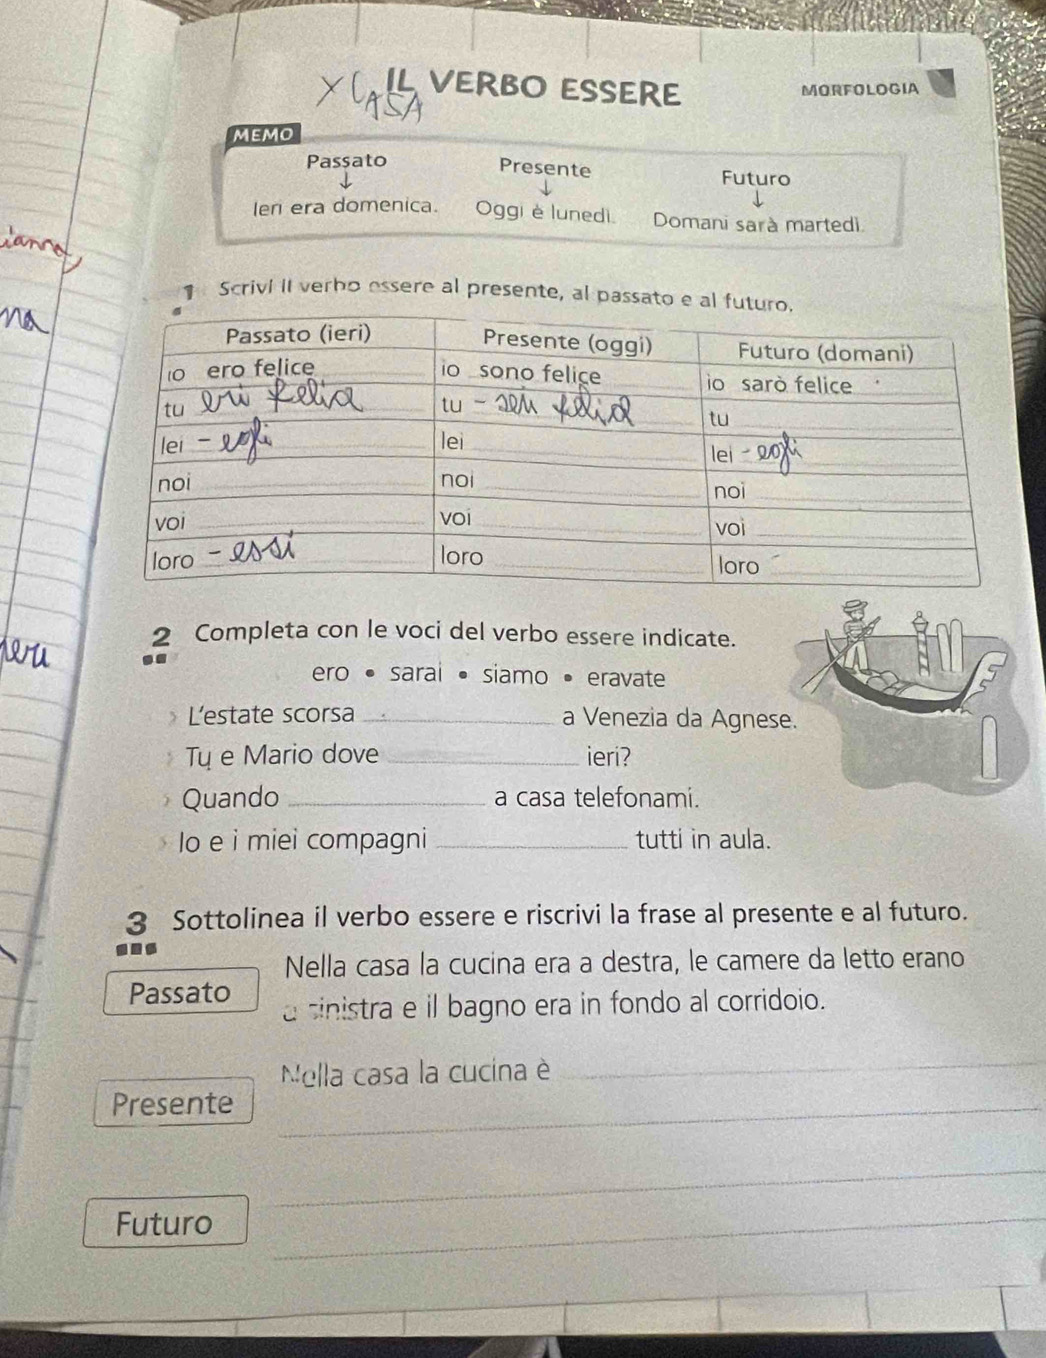 X CASA
IL VERBO ESSERE
MORFOLOGIA
MEMO
Passato Presente Futuro
Ieri era domenica. Oggi è lunedì. Domani sarà martedì.
1 Scrivi il verbo essere al presente, al passato e al futuro.
Passato (ieri) Presente (oggi) Futuro (domani)
io ero felice io sono felice io sarò felice
tu eri felice tu - sei felice tu
lei - egli lei lei - egli
noi noi noi
voi voi voi
loro - essi loro loro
2 Completa con le voci del verbo essere indicate.
ero • sarai • siamo • eravate
L'estate scorsa a Venezia da Agnese.
Tu e Mario dove ieri?
Quando a casa telefonami.
Io e i miei compagni tutti in aula.
3 Sottolinea il verbo essere e riscrivi la frase al presente e al futuro.
Passato
Nella casa la cucina era a destra, le camere da letto erano
a sinistra e il bagno era in fondo al corridoio.
Nella casa la cucina è
Presente
Futuro